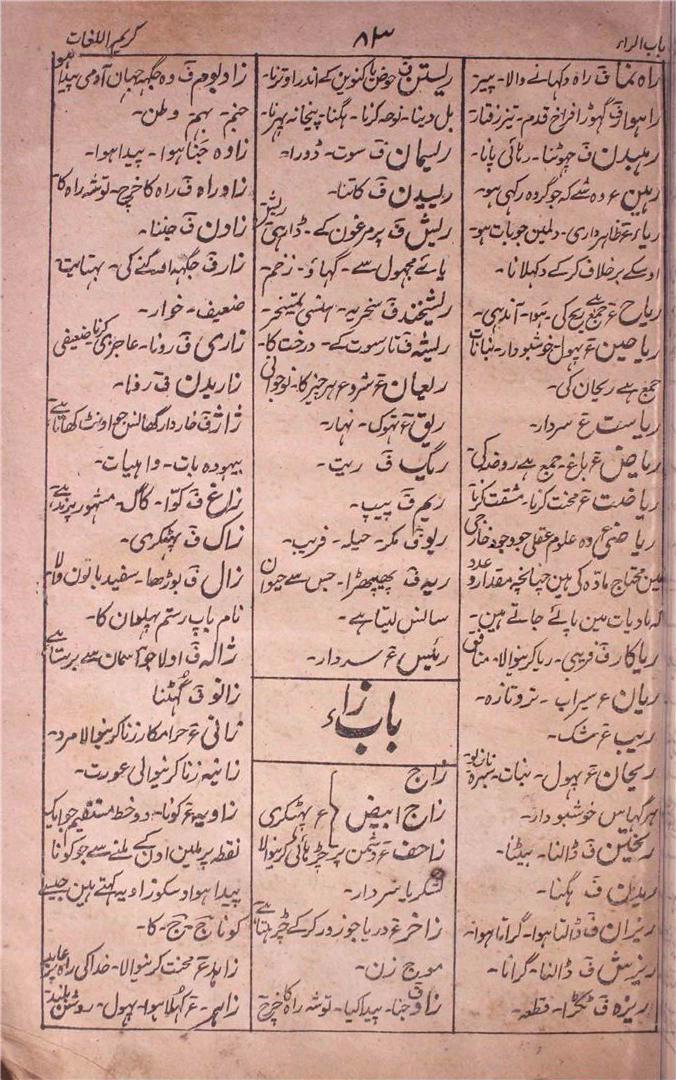 باب الراء
۸۳
کریم اللغات
راہ نما ف راہ دکہانے والا۔ پیر
راہوار ف گہوڑا فراخ قدم۔ تیز رفتار۔
رہیدن ف چہوٹنا۔ رہائی پانا۔
رہین ع وہ شے کہ جو گرو رکہی ہو۔
ریاء ع ظاہرداری۔ دلمین جو بات ہو
اوسکے برخلاف کرکے دکہلانا۔
ریاح ع جمع ہے ریح کی۔ ہوا۔ آندہی۔
ریاحین ع پہول۔ خوشبودار۔ نباتات
جمع ہے ریحان کی۔
ریاست ع سردار۔
ریاض ع باغ۔ جمع ہے روضہ کی
ریاضت ع محنت کرنا۔ مشقت کرنا
ریاضی ع وہ علوم عقلی جو وجود خارجی
مین محتاج مادہ کی ہین چنانچہ مقدار و عدد
کہ مادیات مین پائے جاتے ہین۔
ریاکار ف فریبی۔ ریا کرنیوالا۔ منافق
ریان ع سیراب۔ تروتازہ۔
ریب ع شک۔
ریحان ع پہول۔ نبات۔ سبزہ نازبو۔
ہر گہاس خوشبودار۔
ریختن ف ڈالنا۔ بیٹنا۔
ریدن ف ہگنا۔
ریزان ف ڈالتا ہوا۔ گراتا ہوا۔
ریزش ف ڈالنا۔ گرانا۔
ریزہ ف ٹکڑا۔ قطعہ۔
ریستن ف حوض یا کنوین کے اندر اوترنا۔
بل دینا۔ نوحہ کرنا۔ ہگنا۔ پیخانہ پہرنا۔
ریسمان ف سوت۔ ڈورا۔
ریسیدن ف کاتنا۔
ریش ف پر مرغون کے۔ ڈاڑہی ریش
یائے مجہول سے۔ گہاؤ۔ زخم۔
ریشخند ف سخریہ۔ ہنسی۔ تمسخر۔
ریشہ ف تار سوت کے۔ درخت کا۔
ریعان ع شروع ہر چیز کا۔ نوجوانی
ریق ع تہوک۔ نہار۔
ریگ ف ریت۔
ریم ف پیپ۔
ریو ف مکر۔ حیلہ۔ فریب۔
ریہ ف پھیپھڑا۔ جس سے حیوان
سانس لیتا ہے۔
رئیس ع سردار۔
باب زاء
زاج
زاج ابیض ع پہٹکری
زاحف ع دشمن پر چڑہائی کرنیوالا
لشکر یا سردار۔
زاخر ع دریا جو زور کرکے چڑہتا ہے
موج زن۔
زاد ف جنا۔ پیدا کیا۔ توشہ راہ کا خرچ
زاد بوم ف وہ جگہہ جہان آدمی پیدا ہو
جنم۔ بہم۔ وطن۔
زادہ جنا ہوا۔ پیدا ہوا۔
زاد راہ ف راہ کا خرچ۔ توشہ راہ کا
زادن ف جننا۔
زار ف جگہہ اوگنے کی۔ بہتایت
ضعیف۔ خوار۔
زاری ف رونا۔ عاجزی کرنا ضعیفی
زاریدن ف رونا۔
ژاژ ف خاردار گہانس جو اونٹ کھاتا ہے
بیہودہ بات۔ واہیات۔
زاغ ف کوا۔ کاگ۔ مشہور پرند ہے
زاک ف پہٹکری۔
زال ف بوڑھا۔ سفید بالون والا
نام باپ رستم پہلوان کا۔
ژالہ ف اولا جو آسمان سے برستا ہے
زانو ف گہٹنا
زانی ع حرامکار زنا کرنیوالا مرد۔
زانیہ زنا کرنیوالی عورت۔
زاویہ ع کونا۔ دو خط مستقیم جو ایک
نقطہ پر ملین اون کے ملنے سے جو کونا
پیدا ہو اوسکو زاویہ کہتے ہین جیسے
کونا ج۔ ج۔ کا۔
زاہد ع محنت کرنیوالا۔ خدا کی راہ پر عابد
زاہر۔ ع کہلا ہوا۔ پہول۔ روشن بلند